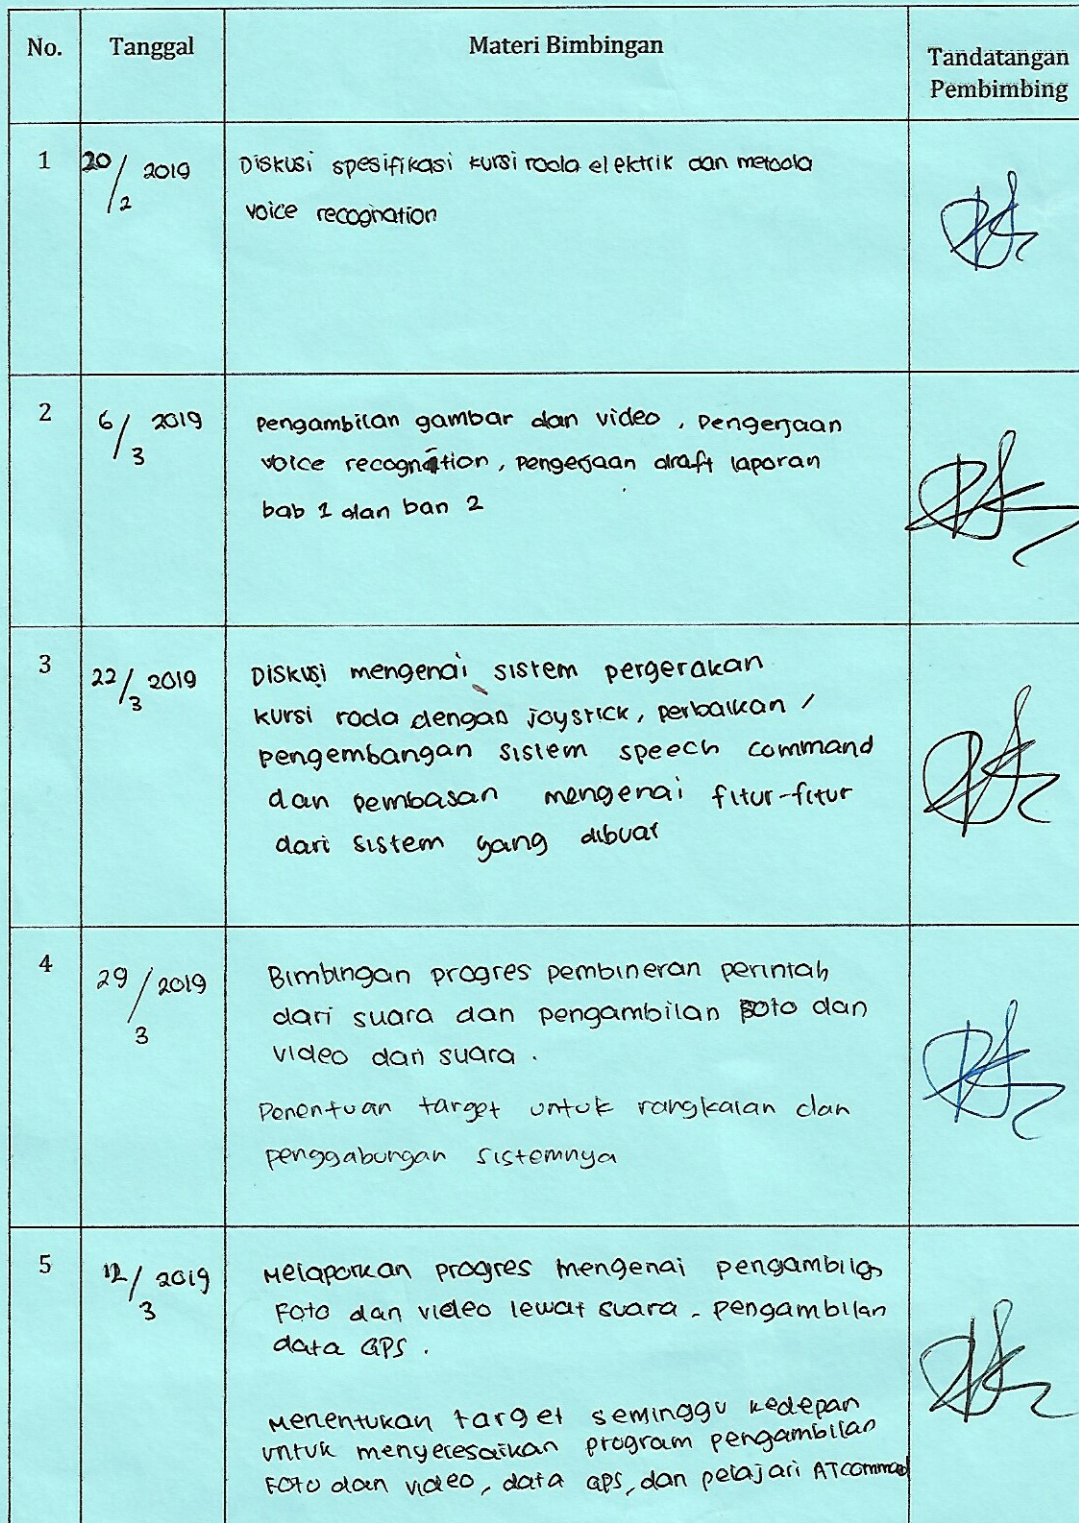 No. Tanggal Materi Bimbingan Tandatangan
Pembimbing
1 20/2 2019 Diskusi spesifikasi kursi roda elektrik dan metoda
voice recognation
2 6/3 2019 Pengambilan gambar dan video, Pengerjaan
voice recognation, pengerjaan draft laporan
bab 1 dan ban 2
3 22/3 2019 Diskusi mengenai sistem pergerakan
kursi roda dengan joystick, perbaikan /
pengembangan sistem speech command
dan pembasan mengenai fitur-fitur
dari sistem yang dibuat
4 29/3 2019 Bimbingan progres pembineran perintah
dari suara dan pengambilan foto dan
video dari suara.
Penentuan target untuk rangkaian dan
penggabungan sistemnya
5 12/3 2019 Melaporkan progres mengenai pengambilan
Foto dan video lewat suara - pengambilan
data GPS.
Menentukan target seminggu kedepan
untuk menyelesaikan program pengambilan
Foto dan video, data GPS, dan pelajari ATcommad